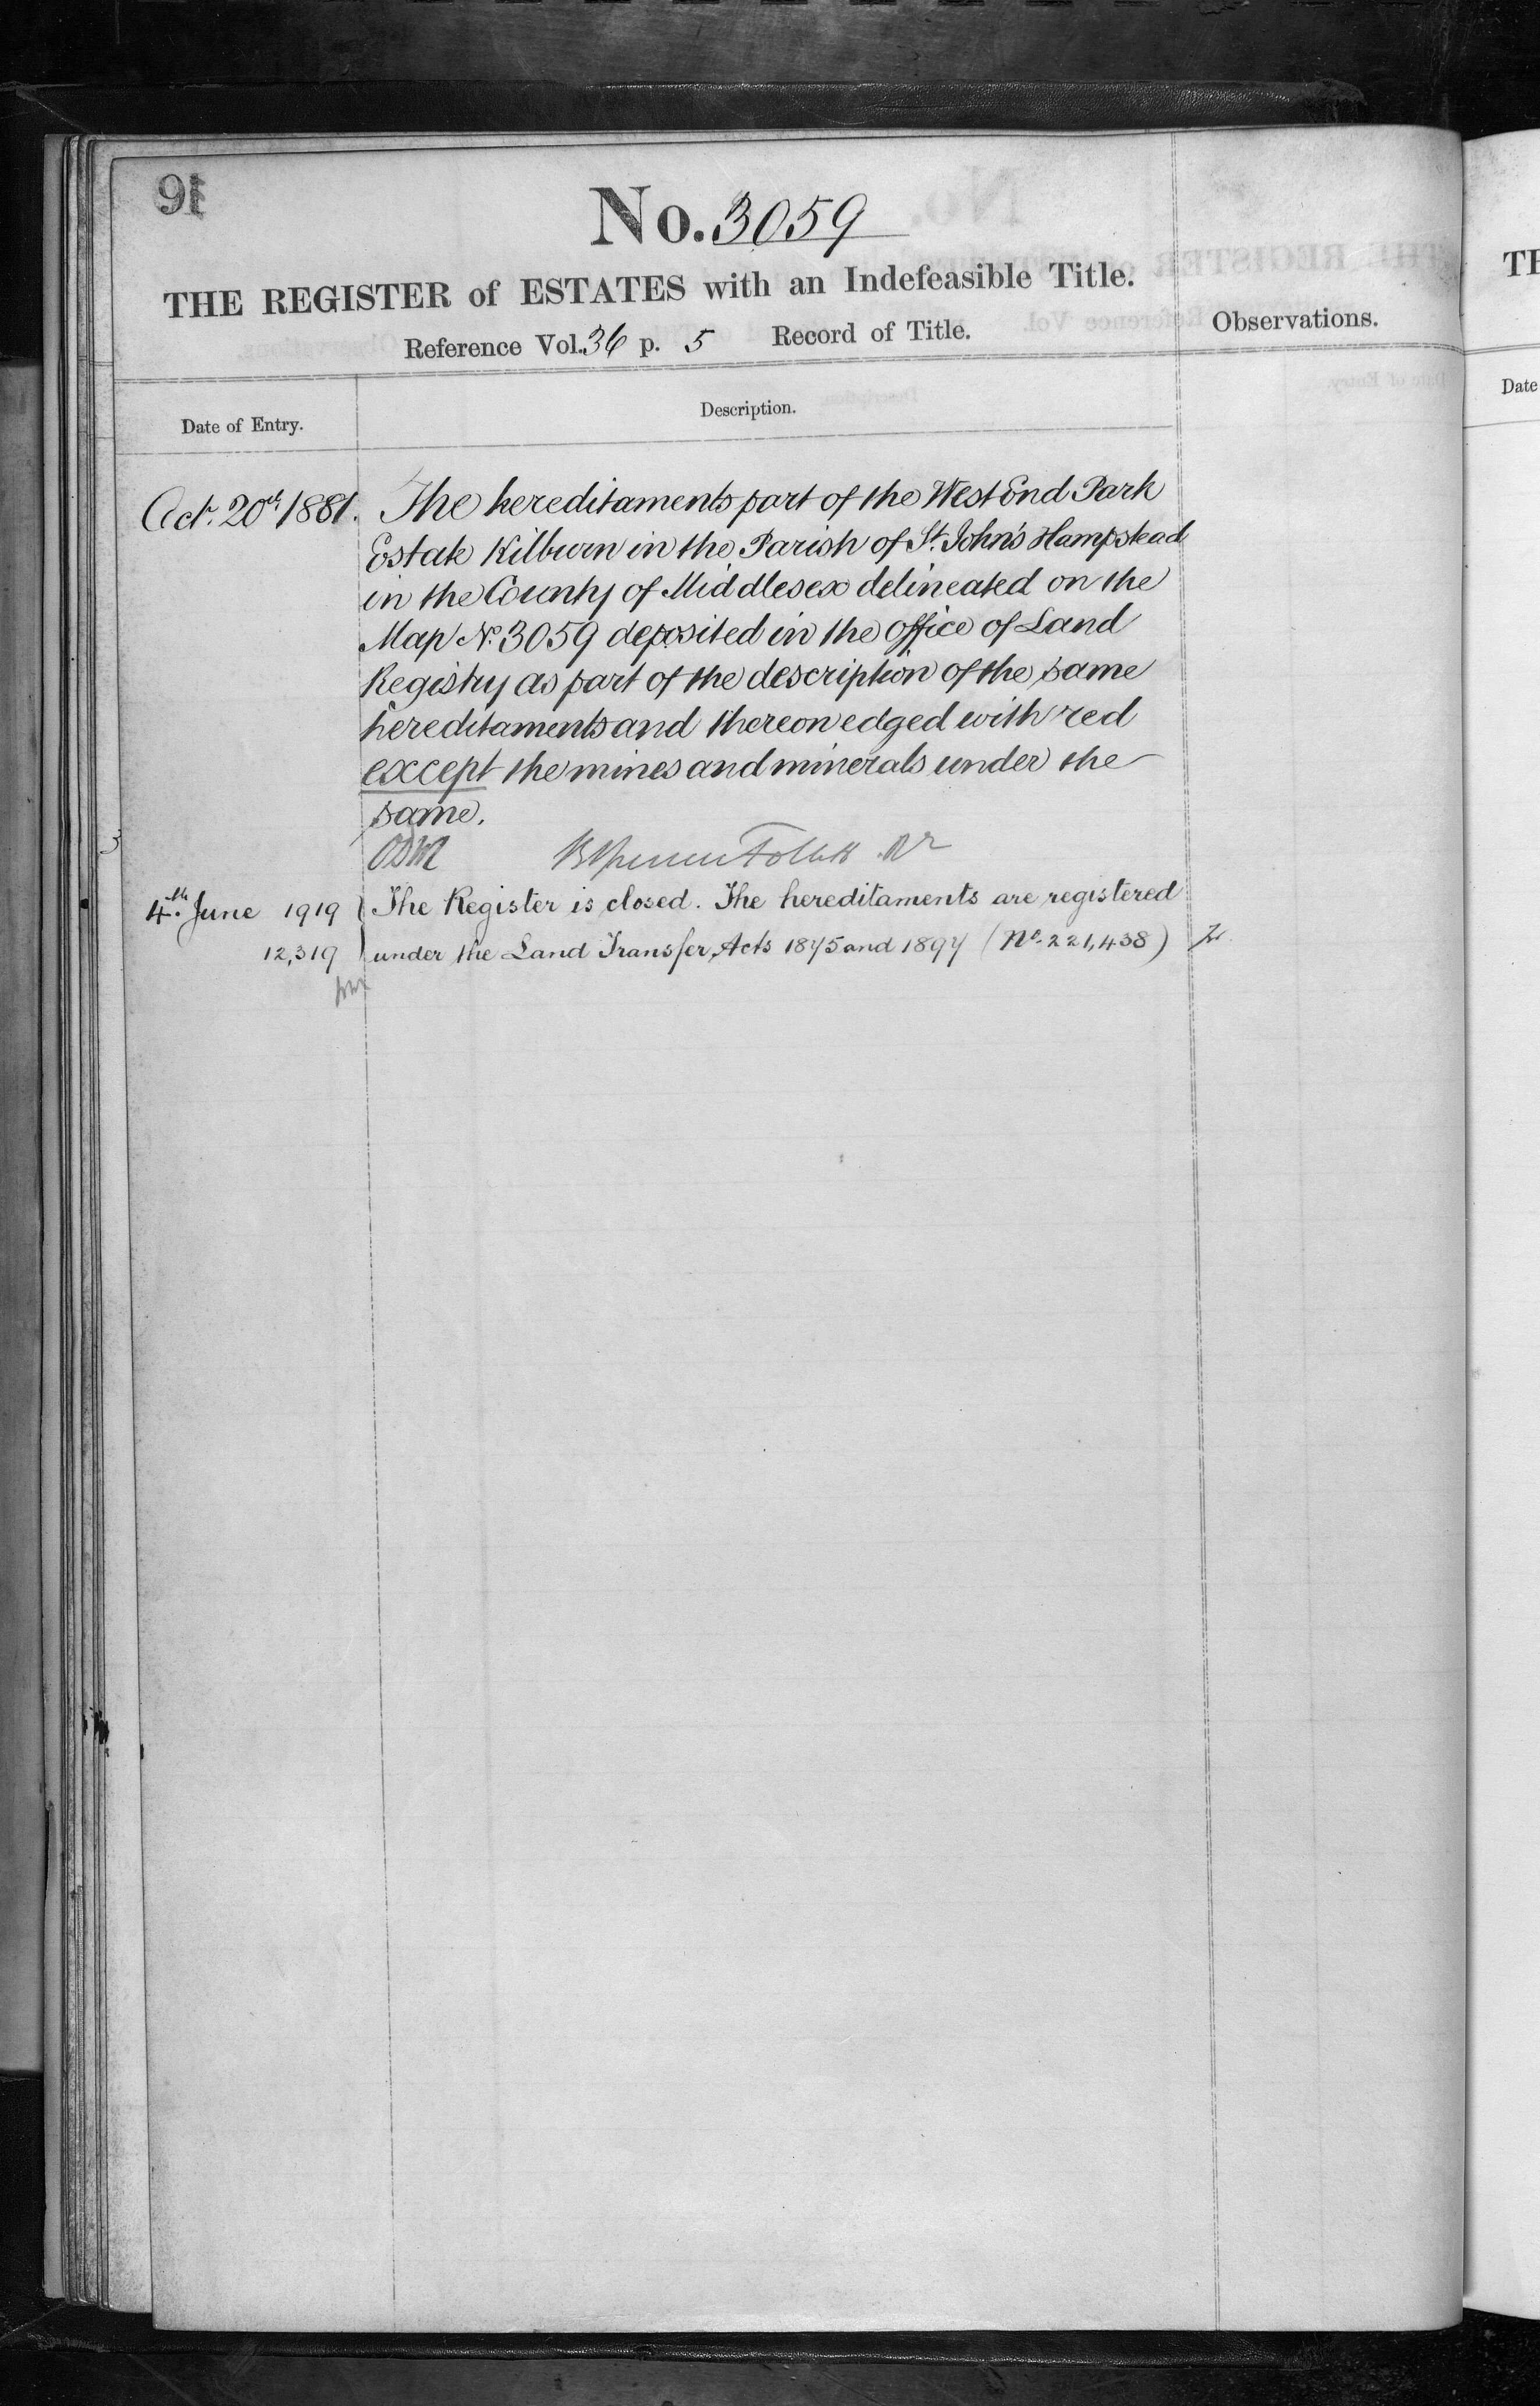 91
No. 3059
THE REGISTER of ESTATES with an Indefeasible Title.
Reference Vol. 36 p. 5 Record of Title.
Observations.
Date of Entry.
Description.
Oct. 20th 1881. The hereditaments part of the West End Park
Estate Kilburn in the Parish of St. John's Hampstead
in the County of Middlesex delineated on the
Map No. 3059 deposited in the office of Land
Registry as part of the description of the same
hereditaments and thereon edged with red
except the mines and minerals under the
same.
4th June 1919 The Register is closed. The hereditaments are registered
12,319 under the Land Transfer Acts 1875 and 1897 (No. 221,438)
Date